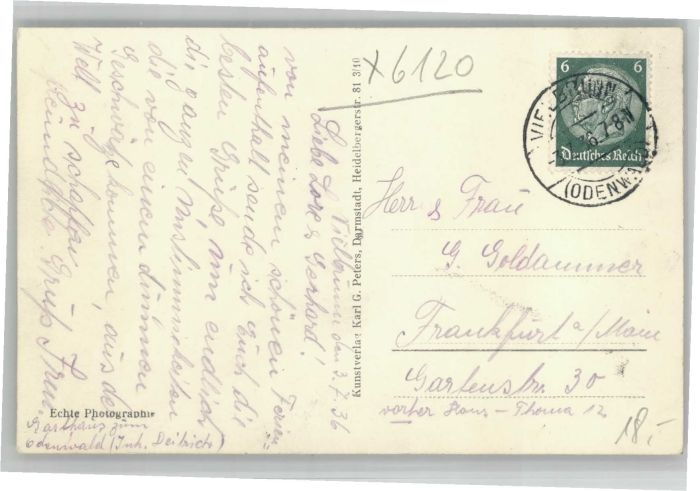 Vielbrunn den 3.7.36
Liebe Lore & Gerhard!
von meinem schönen Ferien-
aufenthalt sende ich euch die
besten Grüße um endlich
die augen
die von einem dummen
Geschwätz kommen, aus der
Welt zu schaffen
Gruß
Echte Photographie
Gasthaus zum
Odenwald (Inh. Deitrich)
Kunstverlag Karl G. Peters, Darmstadt, Heidelbergerstr. 81 3/10
X6120
6 6
Deutsches Reich
VIELBRUNN
7-8-V
(ODENWALD)
Herr & Frau
G. Goldammer
Frankfurt a/Main
Gartenstr. 30
vorher Hans-Thoma 12
18,-